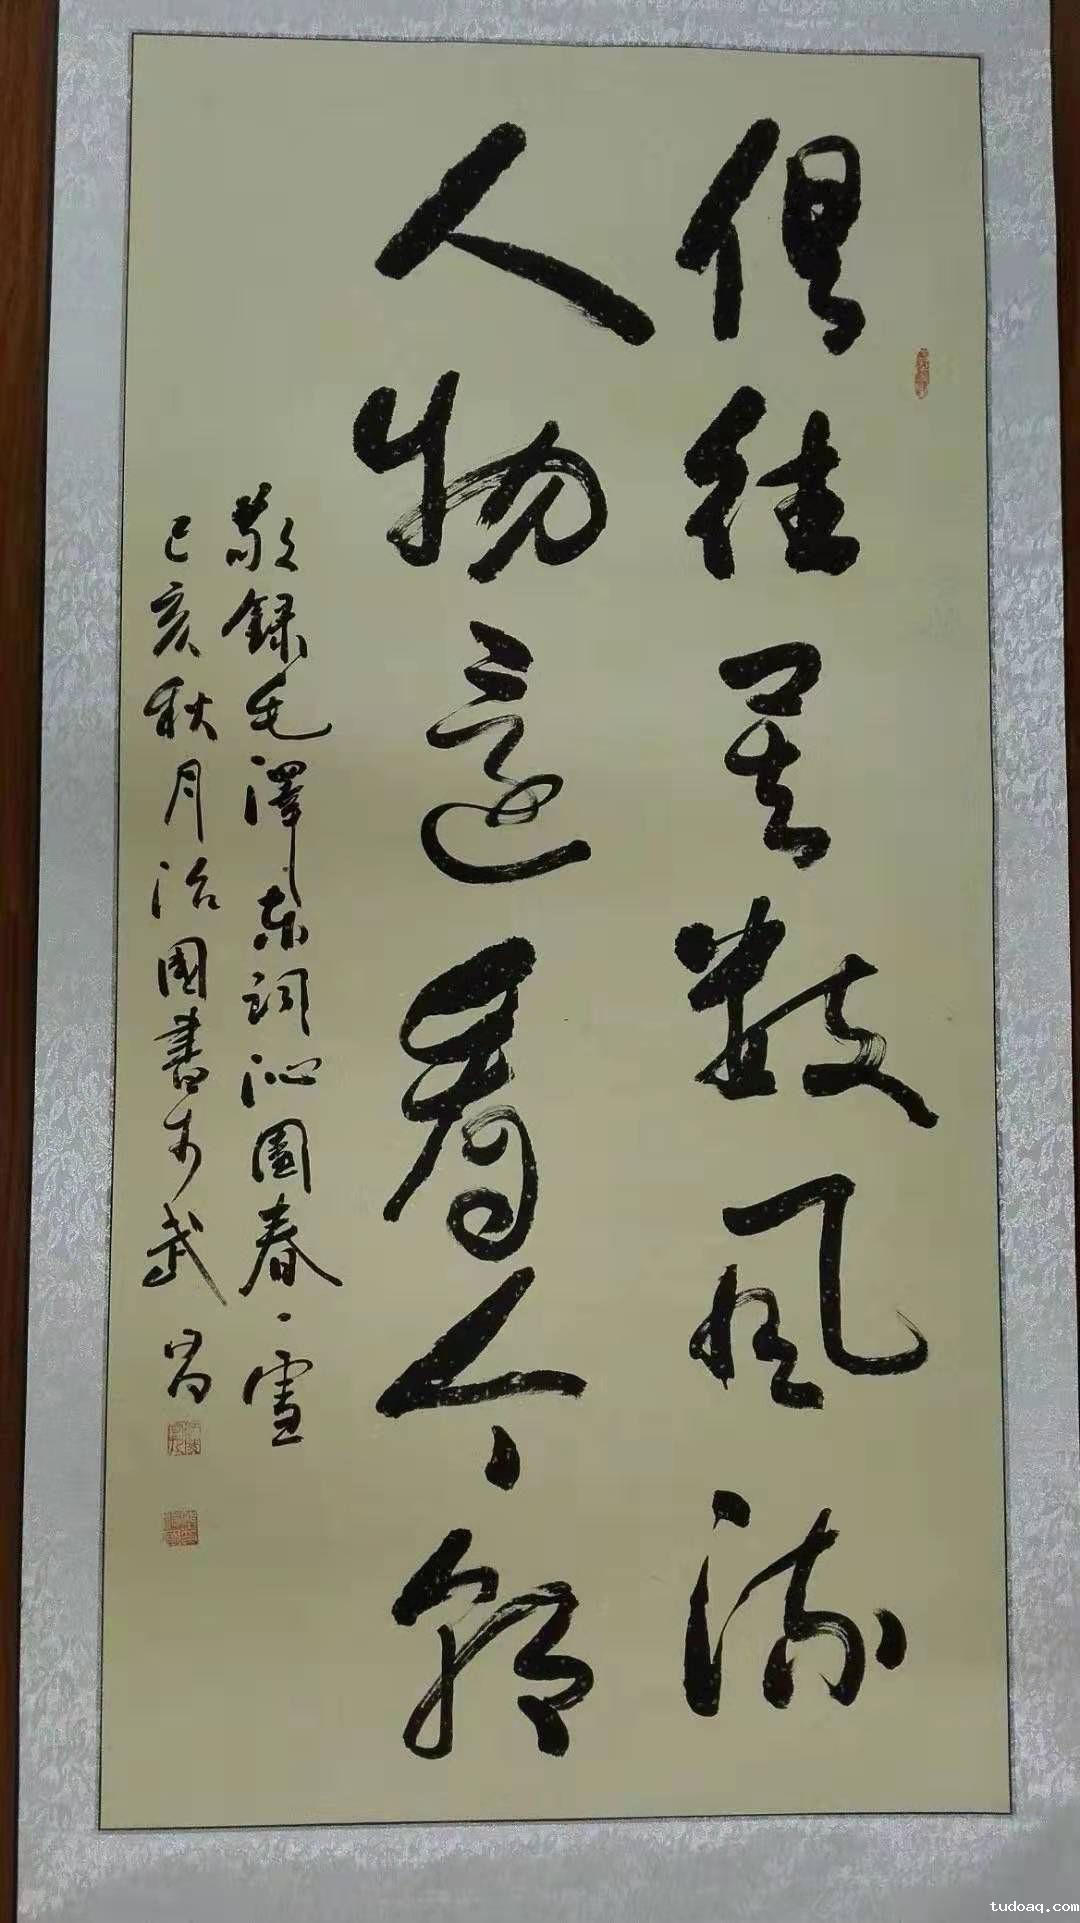 俱往矣数风流
人物还看今朝
敬録毛澤东词沁園春·雪
己亥秋月治國書於武昌
tudoaq.com